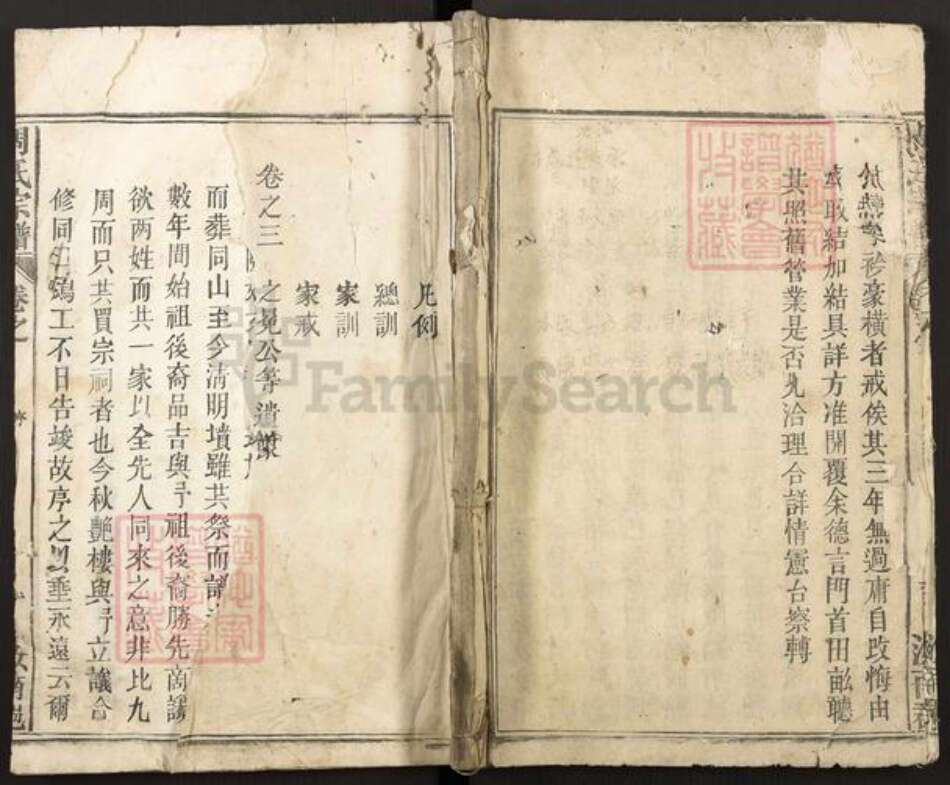 於懲
衿豪横者戒俟其三年無過痛自改悔由
取結加結具詳方准開覆余德言門首田畝聽
其照舊管業是否允洽理合詳情憲台察轉
凡例
總訓
家訓
家戒
卷之三
之晃公等遺像
而葬同山至今清明墳雖共祭而譜
數年間始祖後裔品吉與予祖後裔勝先商議
欲两姓而共一家以全先人同來之意非比九
周而只共買宗祠者也今秋艷樓與予立議合
修同 鳩工不日告竣故序之以垂永遠云爾
周氏宗譜
卷之一
汝南
譜學會
收藏
FamilySearch